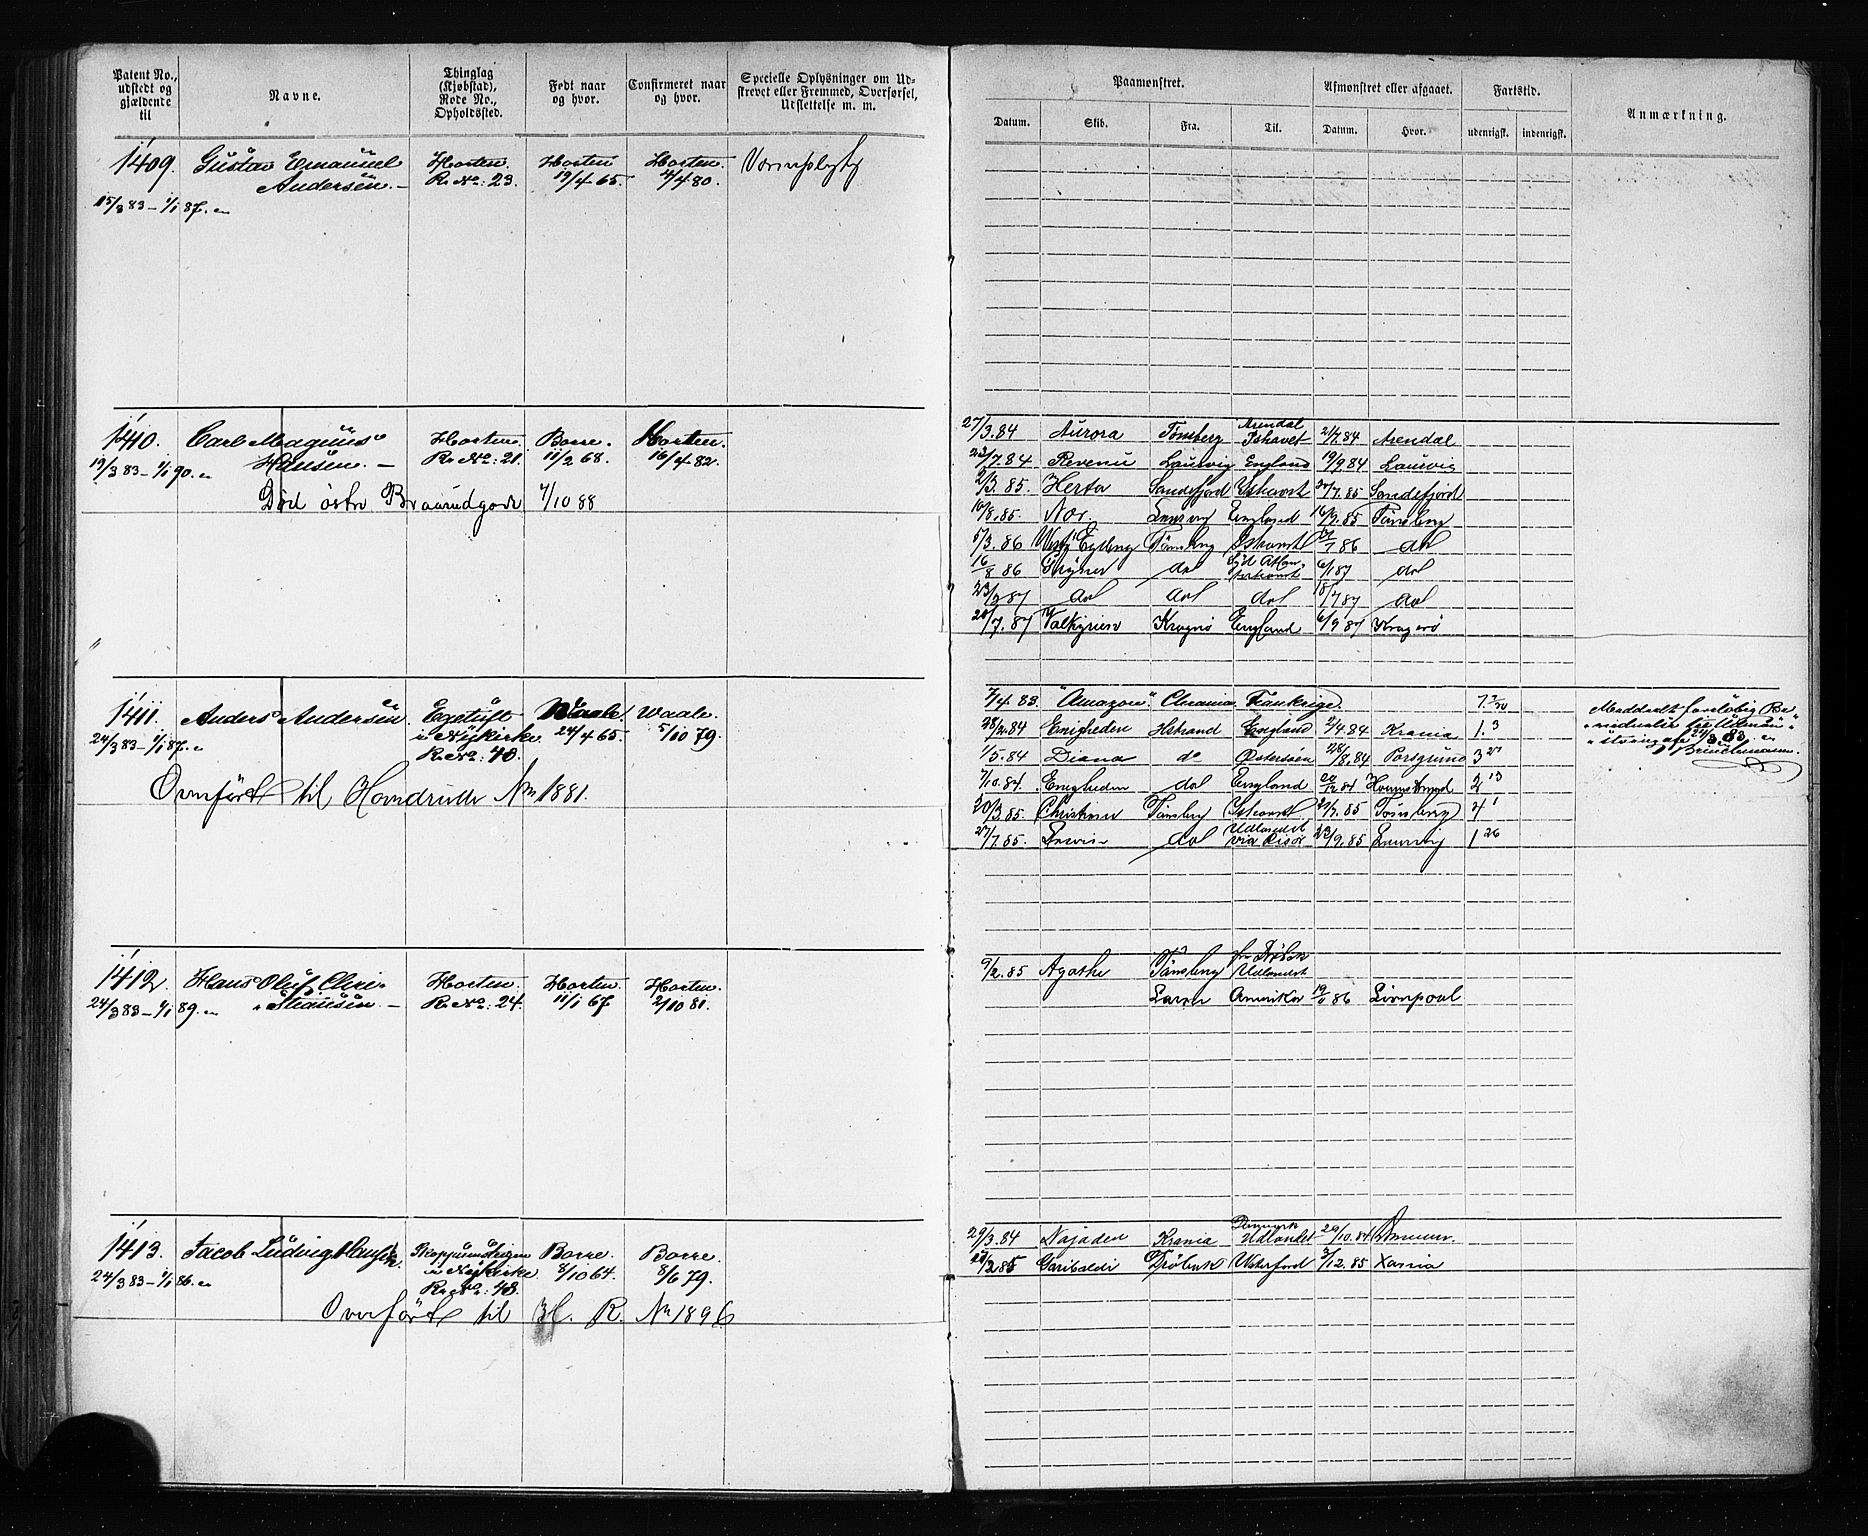 Patent No., udstedt og gjældende til
Navne.
Thinglag (Kjøbstad), Rode No., Opholdssted.
Født naar og hvor.
Confirmeret naar og hvor.
Specielle Oplysninger om Udskrevet eller Fremmed, Overførsel, Udslettelse m. m.
Paamønstret.
Afmønstret eller afgaaet.
Fartstid.
Anmærkning.
Datum. Skib. Fra. Til. Datum. Hvor. udenrigsk. indenrigsk.
1409. Gustav Emanuel Horten. Horten Horten. Værnepligtig
Andersen. R. No: 23. 19/4 65. 4/4 80.
15/3 83 – 1/1 87.
27/3.84 Aurora Tønsberg Arendal Ishavet 2/7.84 Arendal
1410. Carl Magnus Horten. Borre. Horten.
Hansen. R. No: 21. 11/2 68. 16/4 82.
19/3 83 – 1/1 90.
Død østre Braarudgade 7/10 88
22/7.84 Revenu Laurvig England 19/9 84 Laurvig
2/3. 85. Herta Sandefjord Ishavet 7. 85 Sandefjord
10/8. 85. Nor. England 16/9. 85 Tønsberg
5/3. 86 Tønsberg Ishavet 86 do
16/8 86 do Syd Atlan. 6/1 87 do
23/2 87 do do do 18/7 87 do
20/7. 87 Valkyrien Kragerø England 6/9 87 Kragerø
7/4 83 "Amazon" Chrania Frankrige 7.
1411. Anders Andersen. Egetuft Waale. Waale.
i Nykirke 24/4 65. 5/10 79.
R. No: 48.
24/3 83 – 1/1 87.
Overført til Hovedrulle No 1881.
28/2 84 Enigheden Hstrand England 2/4.84 Krania 1. 3
1/5.84 Diana do Østersøen 28/8.84 Porsgrund 3
7/10.84. Enigheden do England 84 2 13
20/3 85. Christiane Tønsberg Ishavet 7. 85 Tønsberg 4 1
27/7. 85. do Udlandet via Risør 23/9. 85 Laurvig 1 26
5/2. 85 Agathe Tønsberg Udlandet
1412. Hans Oluf Chri- Horten. Horten Horten.
stiansen. R. No: 24. 11/1 67 2/10 81.
24/3 83 – 1/1 89.
Amerika 86 Liverpool
29/3.84 Najaden Krania Danmark Udlandet 29/10.84
1413. Jacob Ludvig Hansen. Borre. Borre.
i Nykirke 8/10 64. 8/6 79.
R. No: 48.
24/3 83 – 1/1 86.
Overført til H. R. No 1896
2 85 Garibaldi Drøbak 3/12. 85 Xania